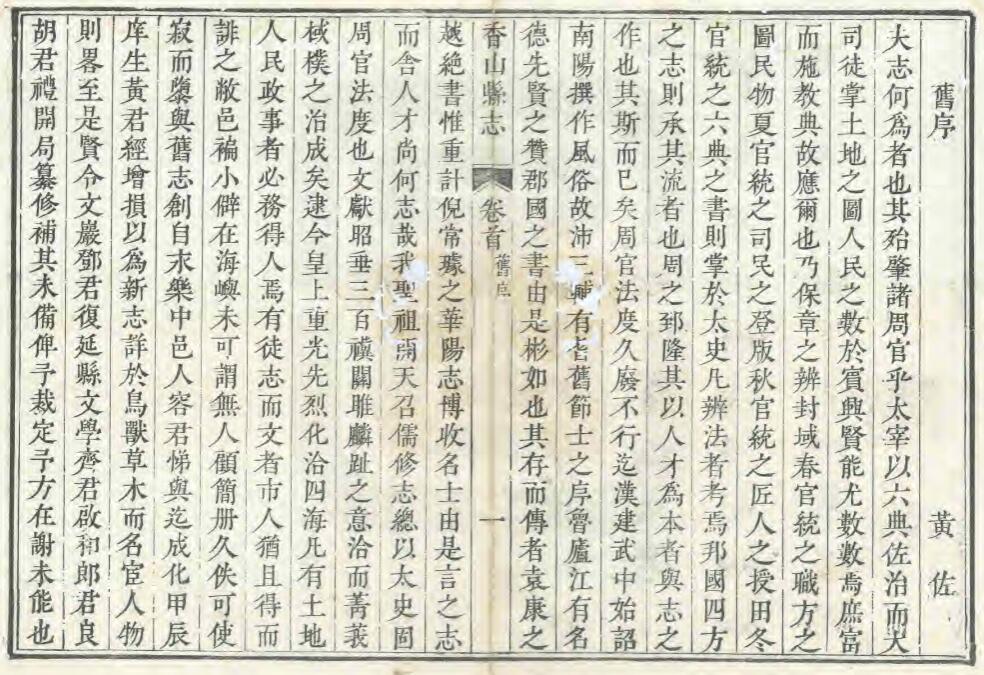 舊序　黃佐
夫志何爲者也其殆肇諸周官乎太宰以六典佐治而大
司徒掌土地之圖人民之數於賓興賢能尤數數焉庶富
而施教典故應爾也乃保章之辨封域春官統之職方之
圖民物夏官統之司民之登版秋官統之匠人之授田冬
官統之六典之書則掌於太史凡辨法者考焉邦國四方
之志則承其流者也周之郅隆其以人才爲本者與志之
作也其斯而已矣周官法度久廢不行迄漢建武中始詔
南陽撰作風俗故沛三輔有耆舊節士之序魯廬江有名
德先賢之贊郡國之書由是彬如也其存而傳者袁康之
香山縣志　卷首　舊序　一
越絕書惟重計倪常璩之華陽志博收名士由是言之志
而舍人才尚何志哉我聖祖開天召儒修志總以太史固
周官法度也文獻昭垂三百禩關雎麟趾之意洽而菁莪
棫樸之治成矣逮今皇上重光先烈化洽四海凡有土地
人民政事者必務得人焉有徒志而文者市人猶且得而
誹之敝邑褊小僻在海嶼未可謂無人顧簡册久佚可使
寂而蘗與舊志創自永樂中邑人容君悌與迄成化甲辰
庠生黃君經增損以爲新志詳於鳥獸草木而名宦人物
則畧至是賢令文巖鄧君復延縣文學齊君啟和郎君良
胡君禮開局纂修補其未備俾予裁定予方在謝未能也